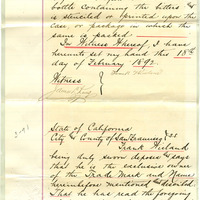 bottle containing the bitters &
is stenciled or printed upon the
case or package in which the
same is packed.
In Witness Whereof, I have
hereunto set my hand this 18th
day of February 1895.
Witness
State of California
City & County of San Francisco } SS
Frank Wieland
being duly sworn deposes & says
that he is the exclusive owner
of the Trade Mark and Name
hereinbefore mentioned & described
That he has read the foregoing